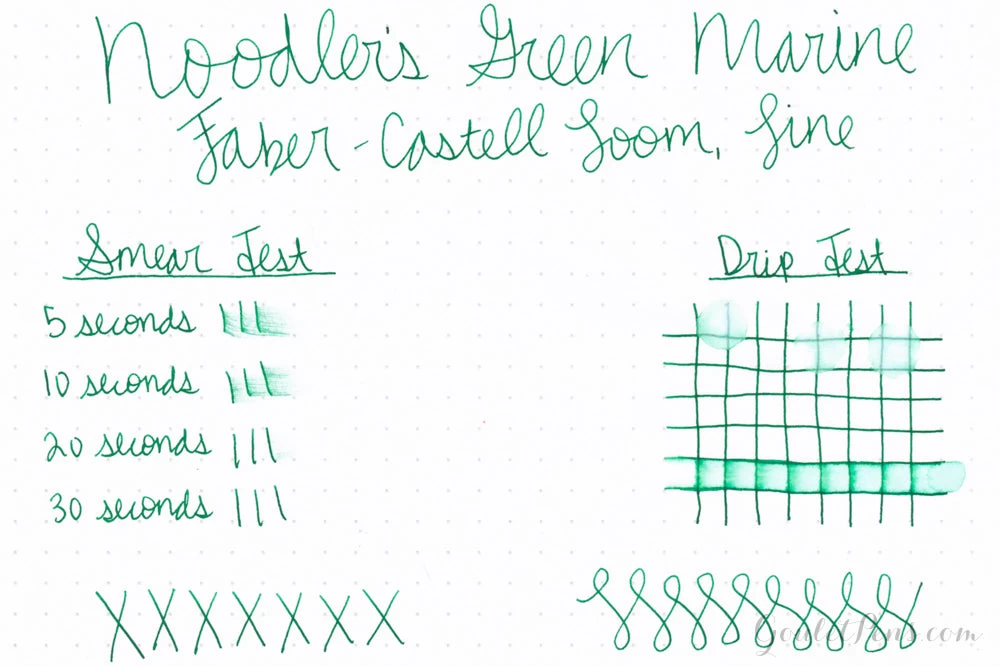 Noodler's Green Marine
Faber-Castell Loom, fine
Smear Test
Drip Test
5 seconds
10 seconds
20 seconds
30 seconds
XXXXXXX
GouletPens.com